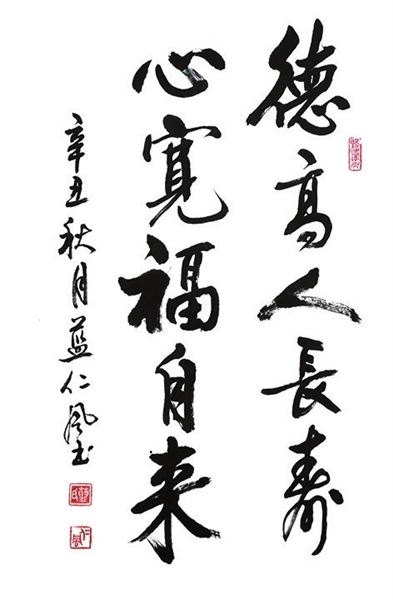 德高人長壽
心寬福自来
辛丑秋月蓝仁风书